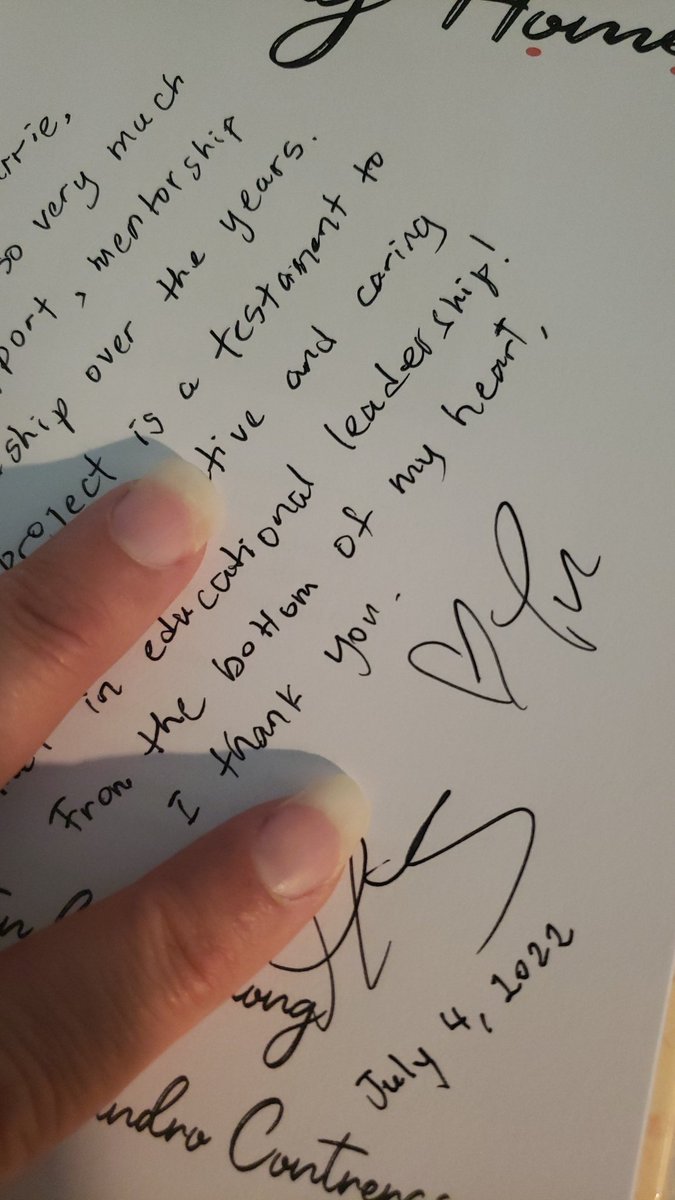 Home
so very much
mentorship
ship over the years.
project is a testament to
tive and caring
in educational leadership!
From the bottom of my heart,
I thank you.
ong
July 4, 2022
ndro Contreras